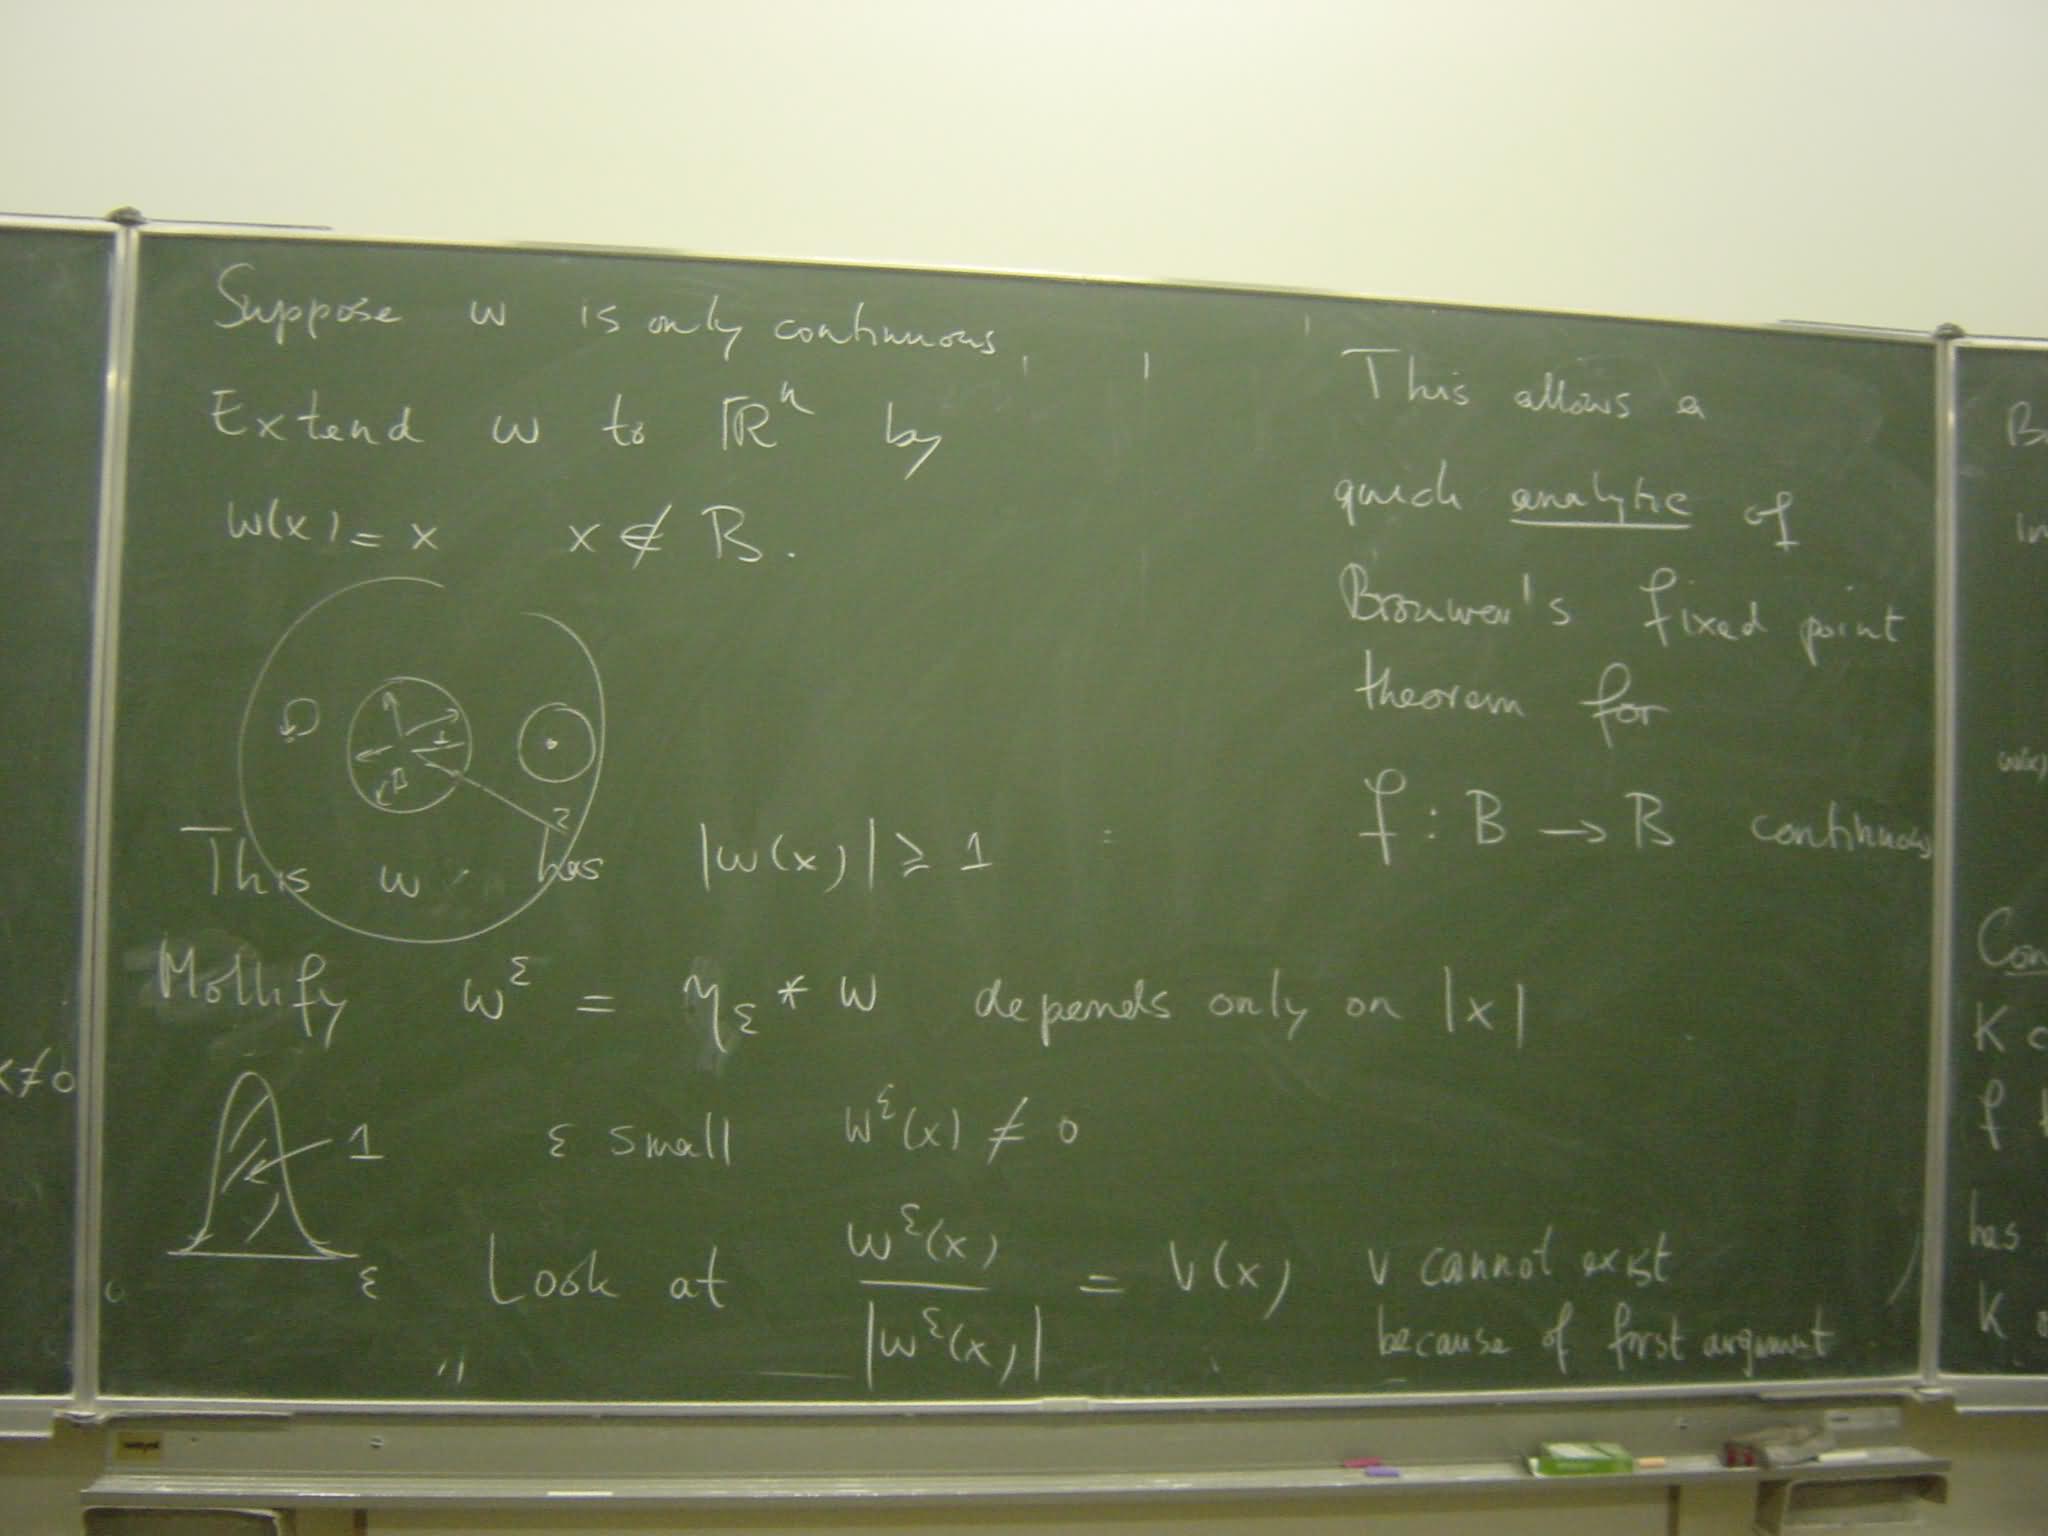 Suppose w is only continuous
Extend w to ℝⁿ by
w(x) = x x ∉ B.
1
B
2
This w has |w(x)| ≥ 1
Mollify w^ε = η_ε * w depends only on |x|
1
ε small w^ε(x) ≠ 0
ε
Look at w^ε(x) / |w^ε(x)| = v(x) v cannot exist
because of first argument
This allows a
quick analytic of
Brouwer's fixed point
theorem for
f : B → B continuous
x ≠ 0
in
w(x)
K
f
has
K